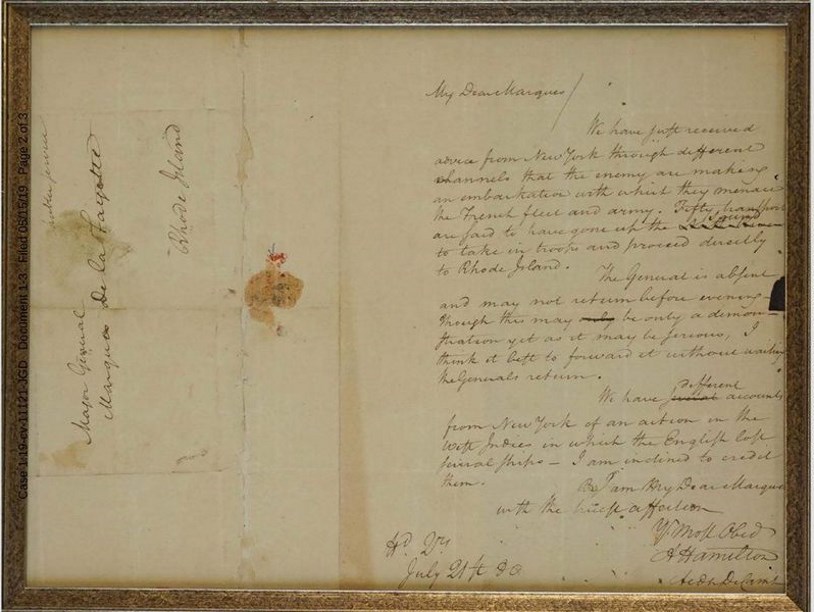 Case 1:19-cv-11121-JGD Document 1-3 Filed 05/15/19 Page 2 of 3
Major General
Marquis De la Fayette
Rhode Island
My Dear Marquis/
We have just received
advice from New York through different
channels that the enemy are making
an embarkation with which they menace
the French fleet and army. Fifty transports
are said to have gone up the Sound
to take in troops and proceed directly
to Rhode Island.
The General is absent
and may not return before evening-
though this may only be only a demon-
stration yet as it may be serious, I
think it best to forward it without waiting
the Generals return.
We have different several accounts
from New York of an action in the
West Indies in which the English lost
several ships - I am inclined to credit
them.
I am My Dear Marquis
with the truest affection
Yr Most Obed
A Hamilton
Aide De Camp
Hd Qrs
July 21st 80